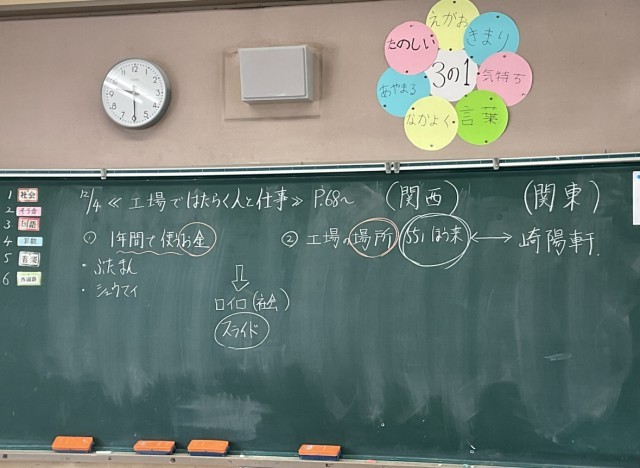 えがお
たのしい
きまり
3の1
気持ち
あやまる
なかよく
言葉
1 社会
2 そう合
3 国語
4 算数
5 音楽
6 外国語
12/4 ≪工場ではたらく人と仕事≫ P.68~ (関西) (関東)
① 1年間で使うお金 ② 工場の場所 551ほう来 ←→ 崎陽軒.
・ぶたまん
・シュウマイ
⇩
ロイロ(社会)
スライド